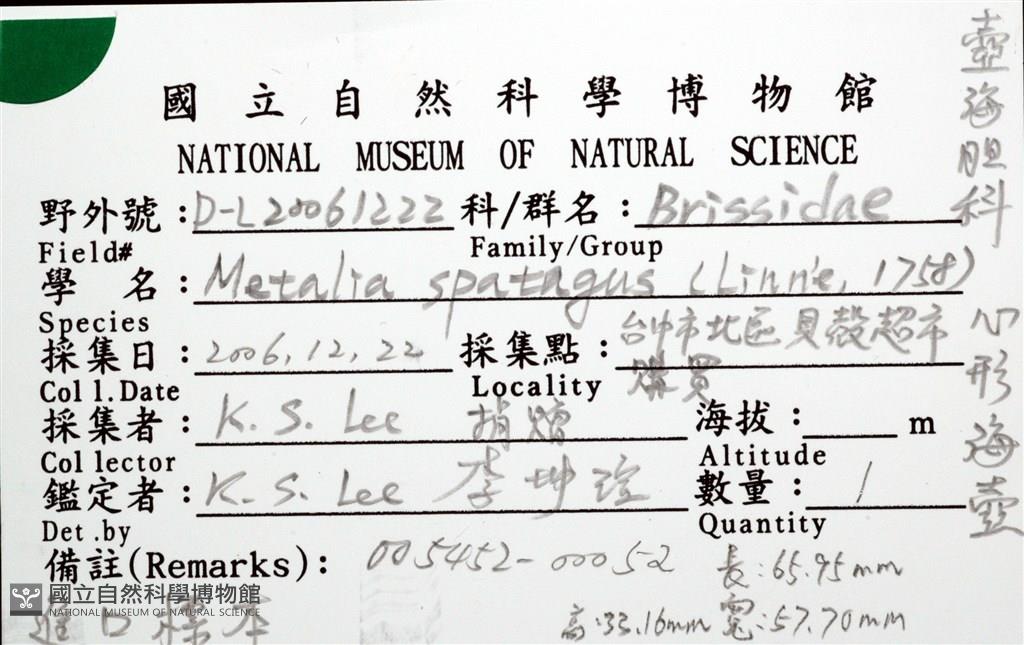 國立自然科學博物館
NATIONAL MUSEUM OF NATURAL SCIENCE
野外號：D-L20061222 科/群名：Brissidae
Field# Family/Group
學 名：Metalia spatagus (Linn'e, 1758)
Species
採集日：2006,12,22 採集點：台中市北區貝殼超市
購買
Coll.Date Locality
採集者：K. S. Lee 捐贈 海拔： m
Collector Altitude
鑑定者：K. S. Lee 李坤瑄 數量：1
Det.by Quantity
備註(Remarks)：005452-00052 長:65.95mm
進口標本 高:33.16mm 寬:57.70mm
壺海胆科
心形海壺
國立自然科學博物館
NATIONAL MUSEUM OF NATURAL SCIENCE